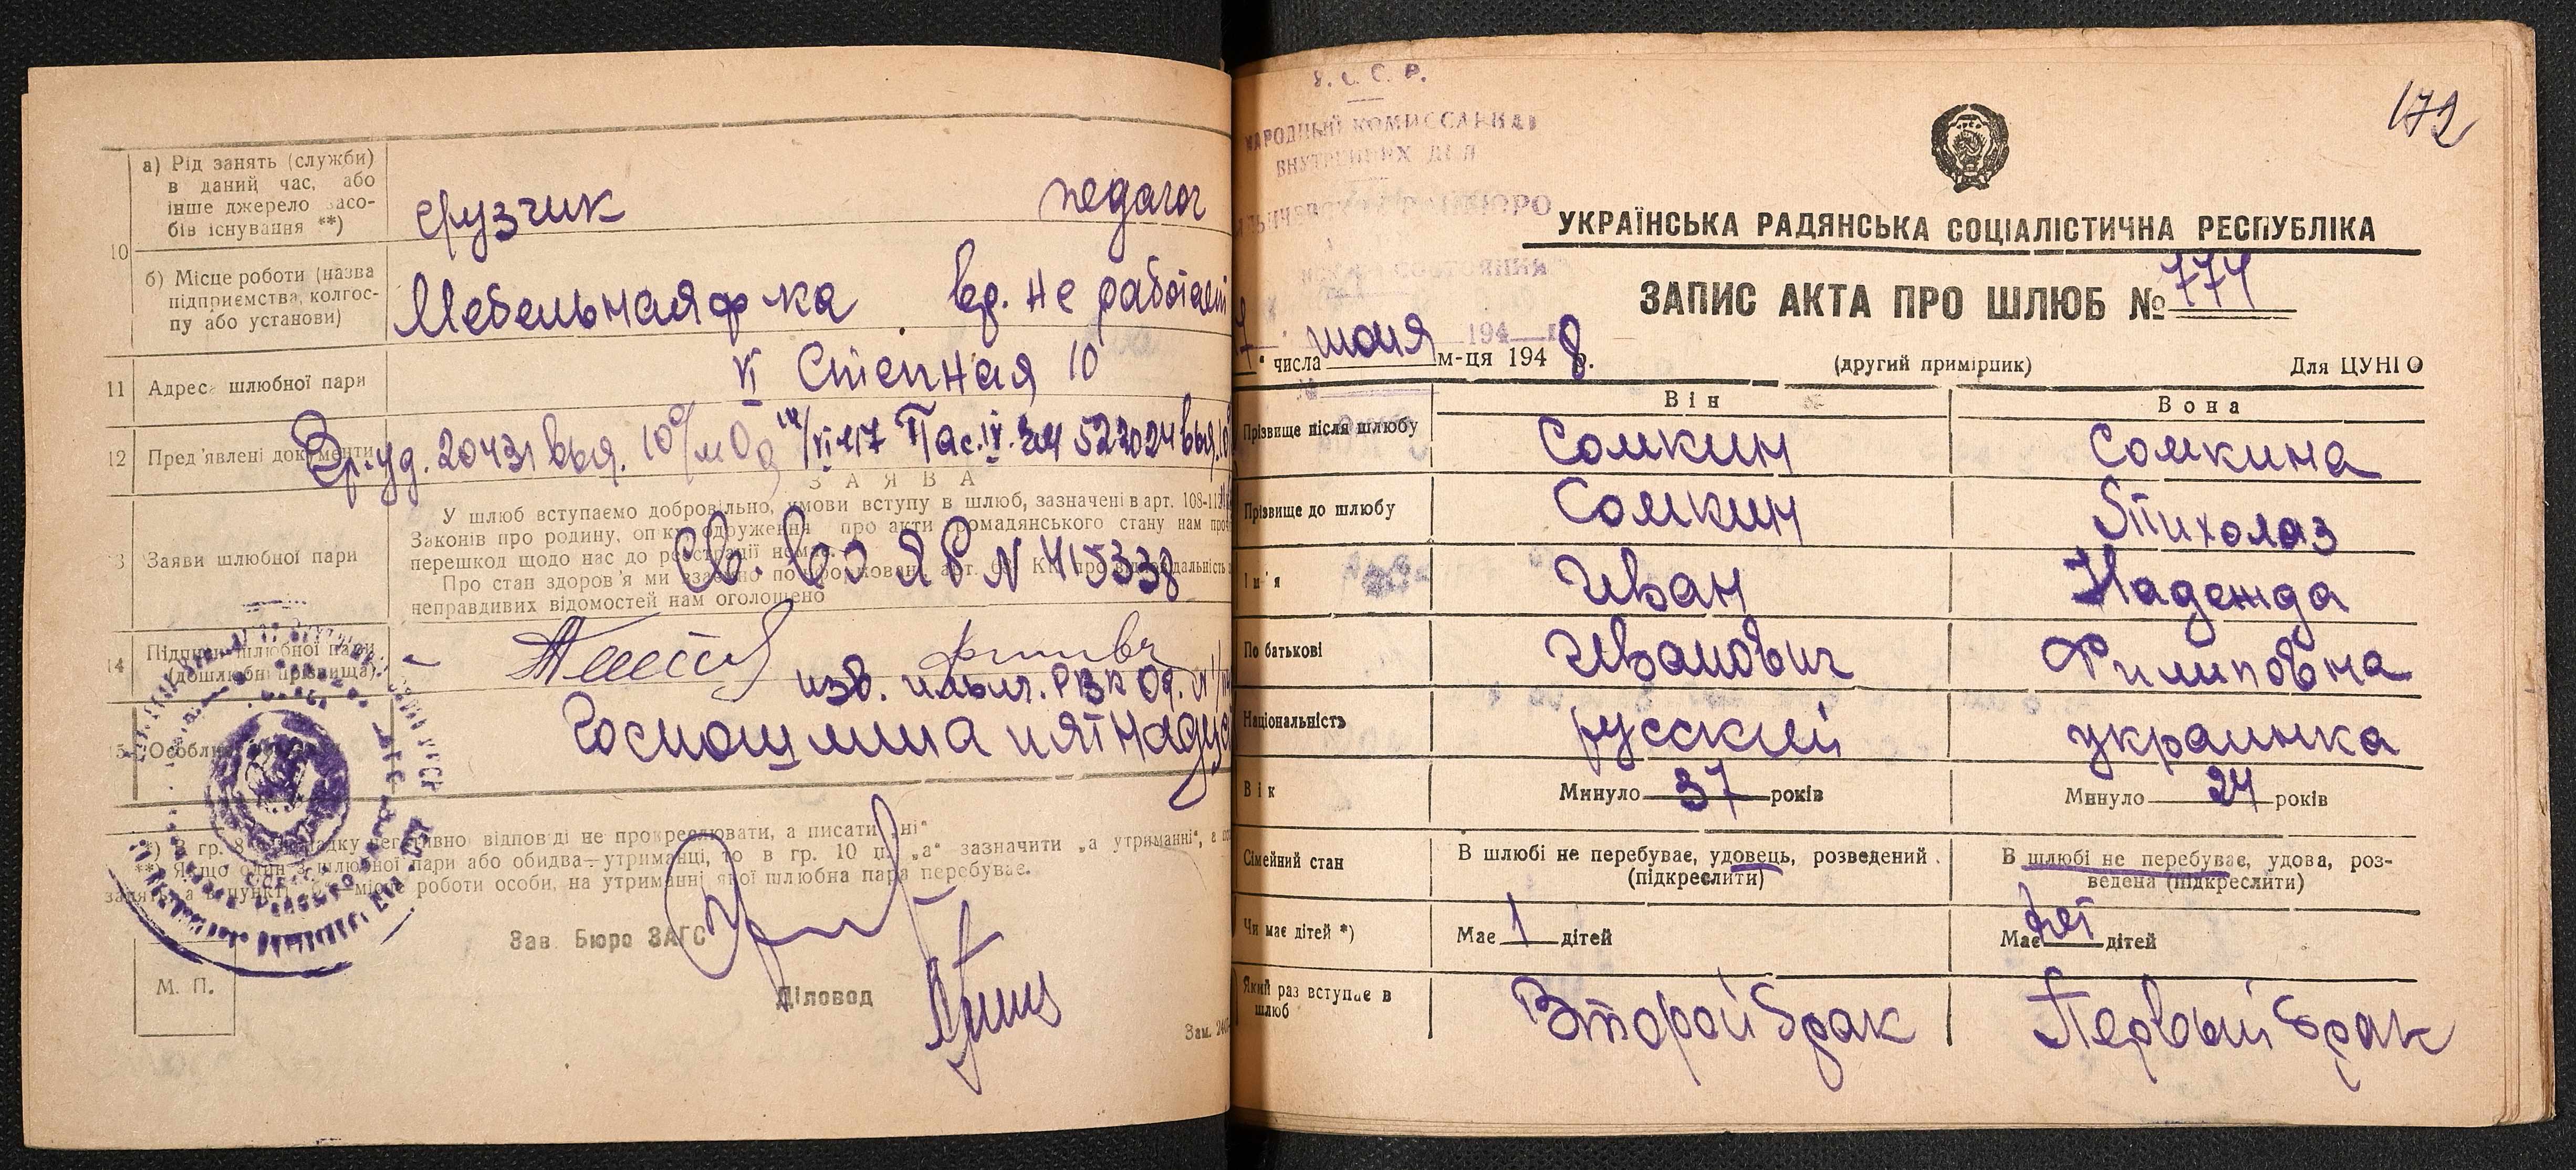 10
а) Рід занять (служби)
в даний час, або
інше джерело засо-
бів існування **)
грузчик педагог
б) Місце роботи (назва
підприємства, колгос-
пу або установи)
Мебельная ф-ка вр. не работает
11 Адреса шлюбної пари
VI Степная 10
12 Пред'явлені документи
Вр. уд. 20431 выд. 10 о/м Од VI 47 Пас. IV. 522024 выд. 10
ЗАЯВА
13 Заяви шлюбної пари
У шлюб вступаємо добровільно, умови вступу в шлюб, зазначені в арт. 108-112
Законів про родину, опіку, одруження про акти громадянського стану нам
перешкод щодо нас до реєстрації немає.
Про стан здоров'я ми взаємно поінформовані, арт. КК про відповідальність
неправдивих відомостей нам оголошено
Св. ЯР N 415338
14 Підписи шлюбної пари
(дошлюбні прізвища)
изв. Ильич. РВК Од.
15 Особливі
Госпошлина пятнадца
*) В гр. 8 випадку негативно відповіді не прокреслювати, а писати „ні“
**) Якщо один з шлюбної пари або обидва—утриманці, то в гр. 10 п. „а“ зазначити „на утриманні“, а
занять, а в пункті „б“ місце роботи особи, на утриманні якої шлюбна пара перебуває.
Зав. Бюро ЗАГС
Діловод
М. П.
Зам.
172
У. С. С. Р.
НАРОДНЫЙ КОМИССАРИАТ
ВНУТРЕННИХ ДЕЛ
УКРАЇНСЬКА РАДЯНСЬКА СОЦІАЛІСТИЧНА РЕСПУБЛІКА
ЗАПИС АКТА ПРО ШЛЮБ № 774
числа июня м-ця 1948 р. (другий примірник) Для ЦУНГО
194 г.
Він Вона
Прізвище після шлюбу Сомкин Сомкина
Прізвище до шлюбу Сомкин Стихолаз
Ім'я Иван Надежда
По батькові Иванович Филиповна
Національність русский украинка
Вік Минуло 37 років Минуло 24 років
Сімейний стан В шлюбі не перебуває, удовець, розведений (підкреслити) В шлюбі не перебуває, удова, роз-
ведена (підкреслити)
Чи має дітей *) Має 1 дітей Має нет дітей
Який раз вступає в
шлюб Второй брак Первый брак